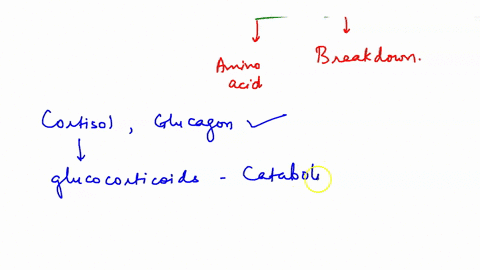 Amino acid
Breakdown.
Cortisol, Glucagon ✓
glucocorticoids - Catabol